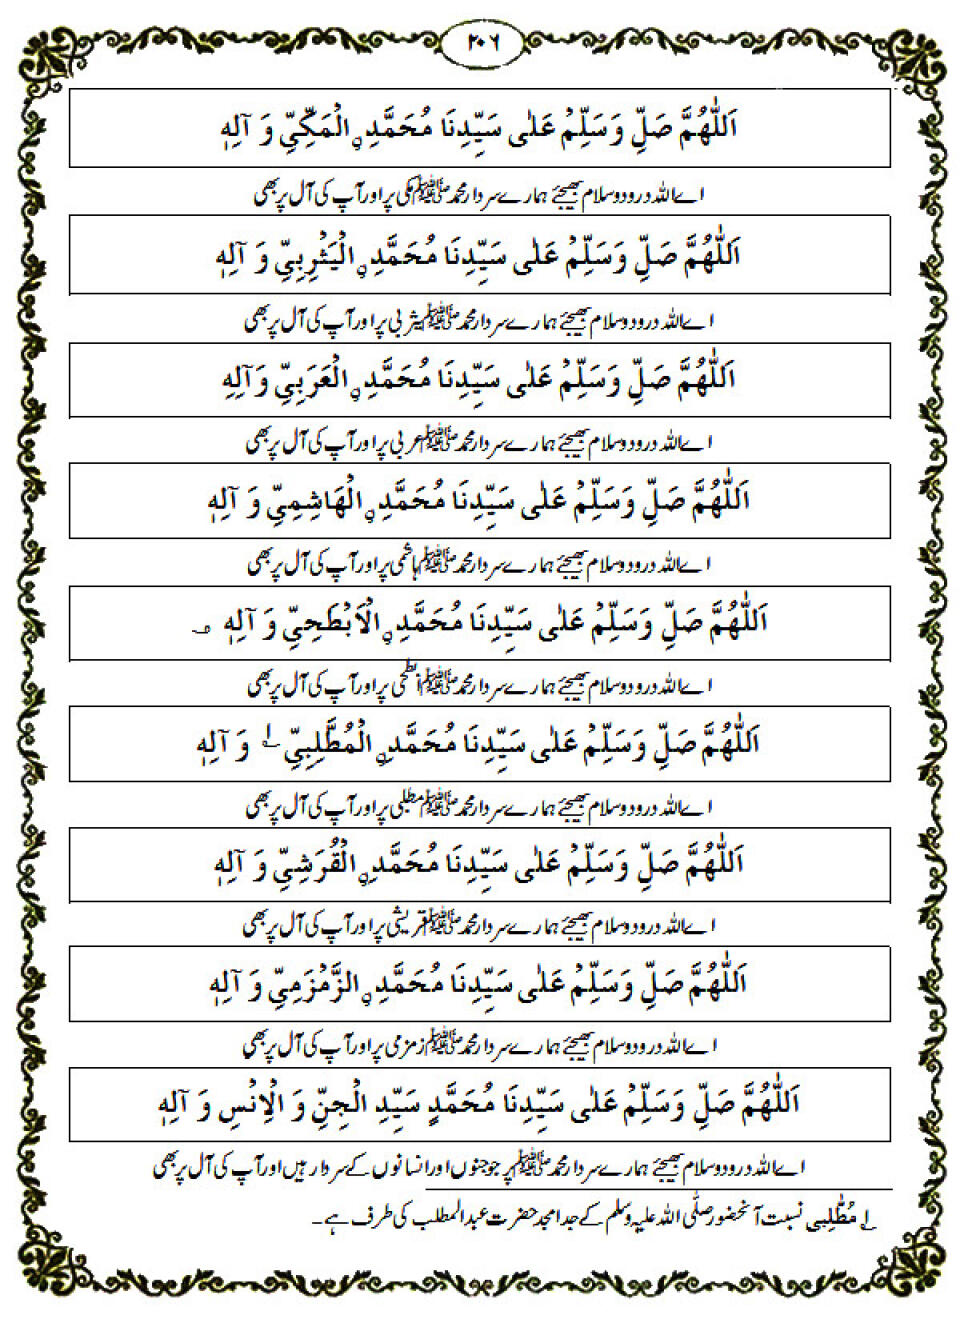 ۲۰۶
اَللّٰهُمَّ صَلِّ وَسَلِّمْ عَلٰى سَيِّدِنَا مُحَمَّدِ ۣالْمَكِّيِّ وَ آلِهٖ
اے اللہ درود و سلام بھیجئے ہمارے سردار محمد ﷺ مکی پر اور آپ کی آل پر بھی
اَللّٰهُمَّ صَلِّ وَسَلِّمْ عَلٰى سَيِّدِنَا مُحَمَّدِ ۣالْيَثْرِبِيِّ وَ آلِهٖ
اے اللہ درود و سلام بھیجئے ہمارے سردار محمد ﷺ یثربی پر اور آپ کی آل پر بھی
اَللّٰهُمَّ صَلِّ وَسَلِّمْ عَلٰى سَيِّدِنَا مُحَمَّدِ ۣالْعَرَبِيِّ وَآلِهِ
اے اللہ درود و سلام بھیجئے ہمارے سردار محمد ﷺ عربی پر اور آپ کی آل پر بھی
اَللّٰهُمَّ صَلِّ وَسَلِّمْ عَلٰى سَيِّدِنَا مُحَمَّدِ ۣالْهَاشِمِيِّ وَ آلِهٖ
اے اللہ درود و سلام بھیجئے ہمارے سردار محمد ﷺ ہاشمی پر اور آپ کی آل پر بھی
اَللّٰهُمَّ صَلِّ وَسَلِّمْ عَلٰى سَيِّدِنَا مُحَمَّدِ ۣالْاَبْطَحِيِّ وَ آلِهٖ
اے اللہ درود و سلام بھیجئے ہمارے سردار محمد ﷺ ابطحی پر اور آپ کی آل پر بھی
اَللّٰهُمَّ صَلِّ وَسَلِّمْ عَلٰى سَيِّدِنَا مُحَمَّدِ ۣالْمُطَّلِبِيِّ ۱ وَ آلِهٖ
اے اللہ درود و سلام بھیجئے ہمارے سردار محمد ﷺ مطلبی پر اور آپ کی آل پر بھی
اَللّٰهُمَّ صَلِّ وَسَلِّمْ عَلٰى سَيِّدِنَا مُحَمَّدِ ۣالْقُرَشِيِّ وَ آلِهٖ
اے اللہ درود و سلام بھیجئے ہمارے سردار محمد ﷺ قریشی پر اور آپ کی آل پر بھی
اَللّٰهُمَّ صَلِّ وَسَلِّمْ عَلٰى سَيِّدِنَا مُحَمَّدِ ۣالزَّمْزَمِيِّ وَ آلِهٖ
اے اللہ درود و سلام بھیجئے ہمارے سردار محمد ﷺ زمزمی پر اور آپ کی آل پر بھی
اَللّٰهُمَّ صَلِّ وَسَلِّمْ عَلٰى سَيِّدِنَا مُحَمَّدٍ سَيِّدِ الْجِنِّ وَ الْاِنْسِ وَ آلِهٖ
اے اللہ درود و سلام بھیجئے ہمارے سردار محمد ﷺ پر جو جنوں اور انسانوں کے سردار ہیں اور آپ کی آل پر بھی
۱ مُطَّلِبِی نسبت آنحضور صلَّی اللہ علیہ وسلم کے جد امجد حضرت عبدالمطلب کی طرف ہے۔